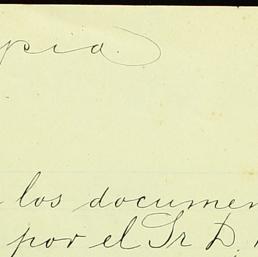 pia.
los documen
por el Sr D.